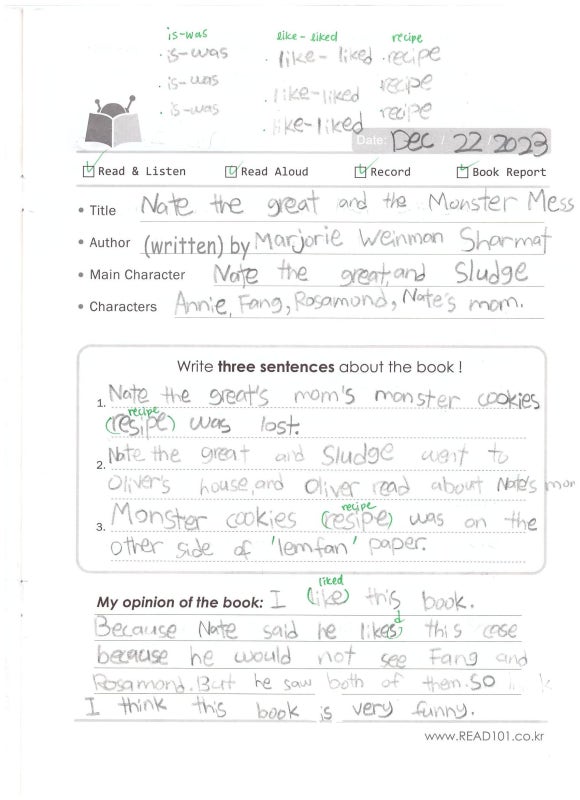 is-was like-liked recipe
is-was like-liked recipe
is-was like-liked recipe
is-was like-liked recipe
Date: Dec / 22 / 2023
Read & Listen Read Aloud Record Book Report
• Title Nate the great and the Monster Mess
• Author (written) by Marjorie Weinman Sharmat
• Main Character Nate the great, and Sludge
• Characters Annie, Fang, Rosamond, Nate's mom.
Write three sentences about the book !
1. Nate the great's mom's monster cookies
recipe
(resipe) was lost.
2. Note the great and Sludge went to
Oliver's house, and Oliver read about Nate's mom
recipe
3. Monster cookies (resipe) was on the
other side of 'lemfan' paper.
liked
My opinion of the book: I (like) this book.
d
Because Nate said he likes this case
because he would not see Fang and
Rosamond. But he saw both of them. so
I think this book is very funny.
www.READ101.co.kr